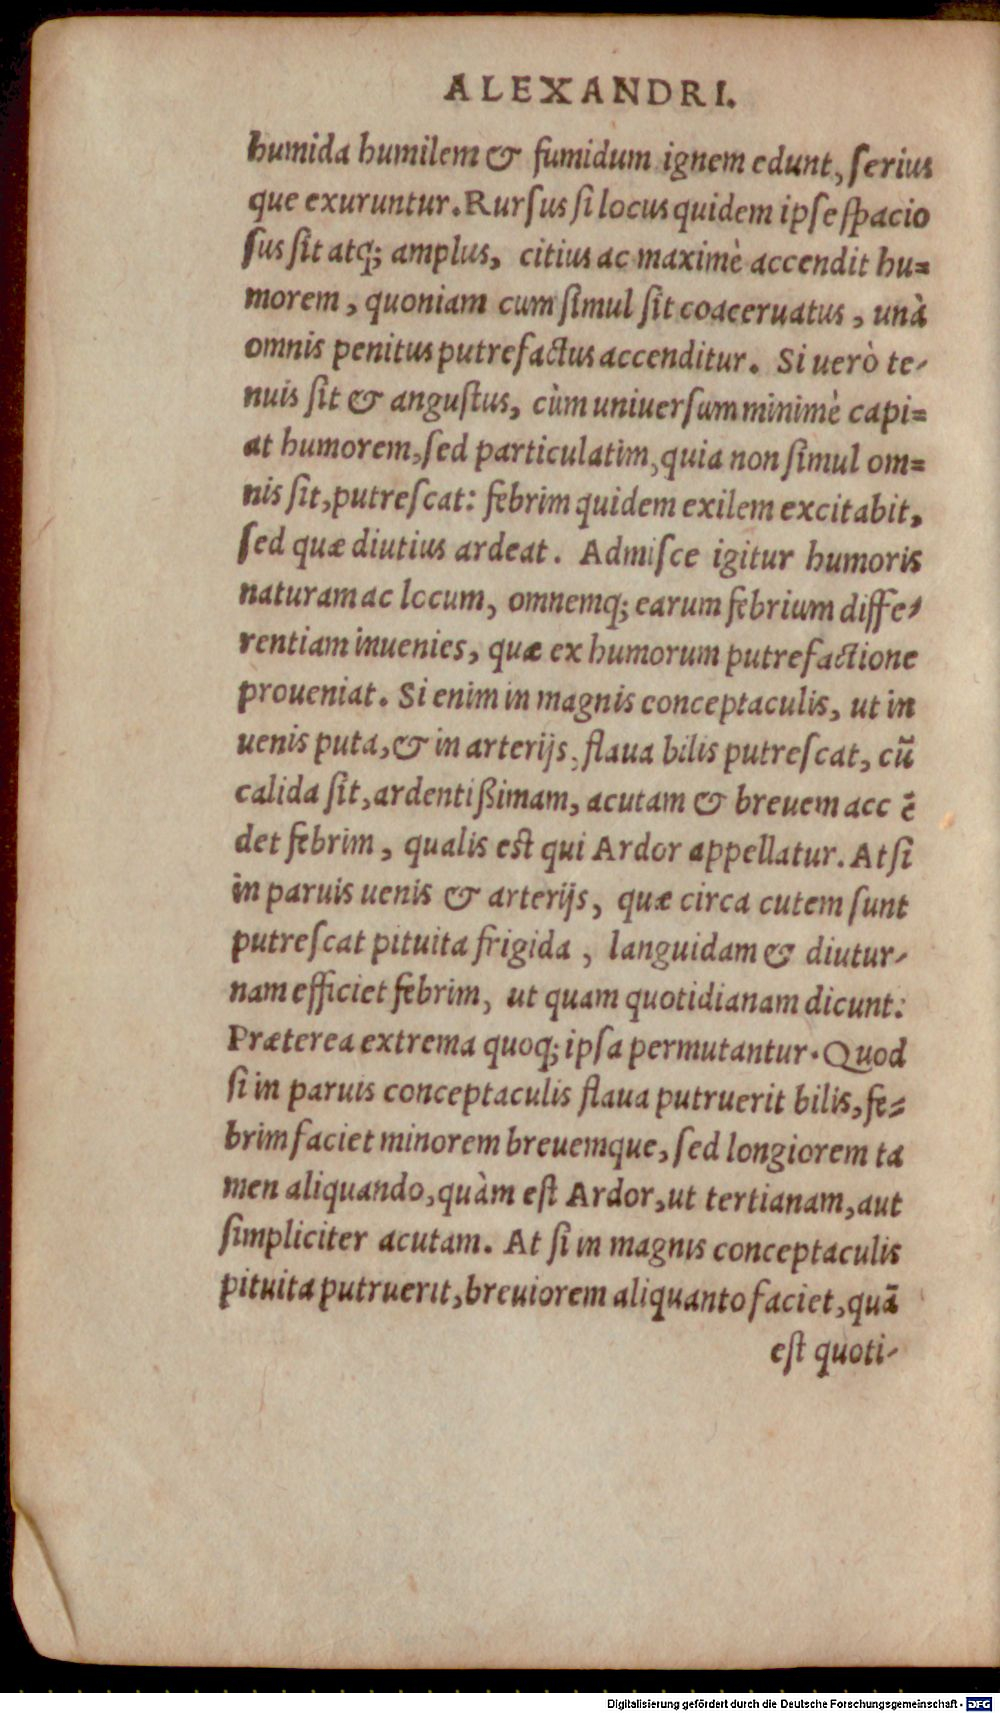 ALEXANDRI.
humida humilem & fumidum ignem edunt, ſerius
que exuruntur. Rurſus ſi locus quidem ipſe ſpacio
ſus ſit atq; amplus, citius ac maximè accendit hu=
morem, quoniam cum ſimul ſit coaceruatus, unà
omnis penitus putrefactus accenditur. Si uerò te-
nuis ſit & anguſtus, cùm uniuerſum minimè capi=
at humorem, ſed particulatim, quia non ſimul om=
nis ſit, putreſcat: febrim quidem exilem excitabit,
ſed quæ diutius ardeat. Admiſce igitur humoris
naturam ac locum, omnemq; earum febrium diffe-
rentiam inuenies, quæ ex humorum putrefactione
proueniat. Si enim in magnis conceptaculis, ut in
uenis puta, & in arterijs, flaua bilis putreſcat, cū
calida ſit, ardentißimam, acutam & breuem acc ē
det febrim, qualis eſt qui Ardor appellatur. At ſi
in paruis uenis & arterijs, quæ circa cutem ſunt
putreſcat pituita frigida, languidam & diutur-
nam efficiet febrim, ut quam quotidianam dicunt:
Præterea extrema quoq; ipſa permutantur. Quod
ſi in paruis conceptaculis flaua putruerit bilis, fe=
brim faciet minorem breuemque, ſed longiorem ta
men aliquando, quàm eſt Ardor, ut tertianam, aut
ſimpliciter acutam. At ſi in magnis conceptaculis
pituita putruerit, breuiorem aliquanto faciet, quā
eſt quoti-
Digitalisierung gefördert durch die Deutsche Forschungsgemeinschaft - DFG